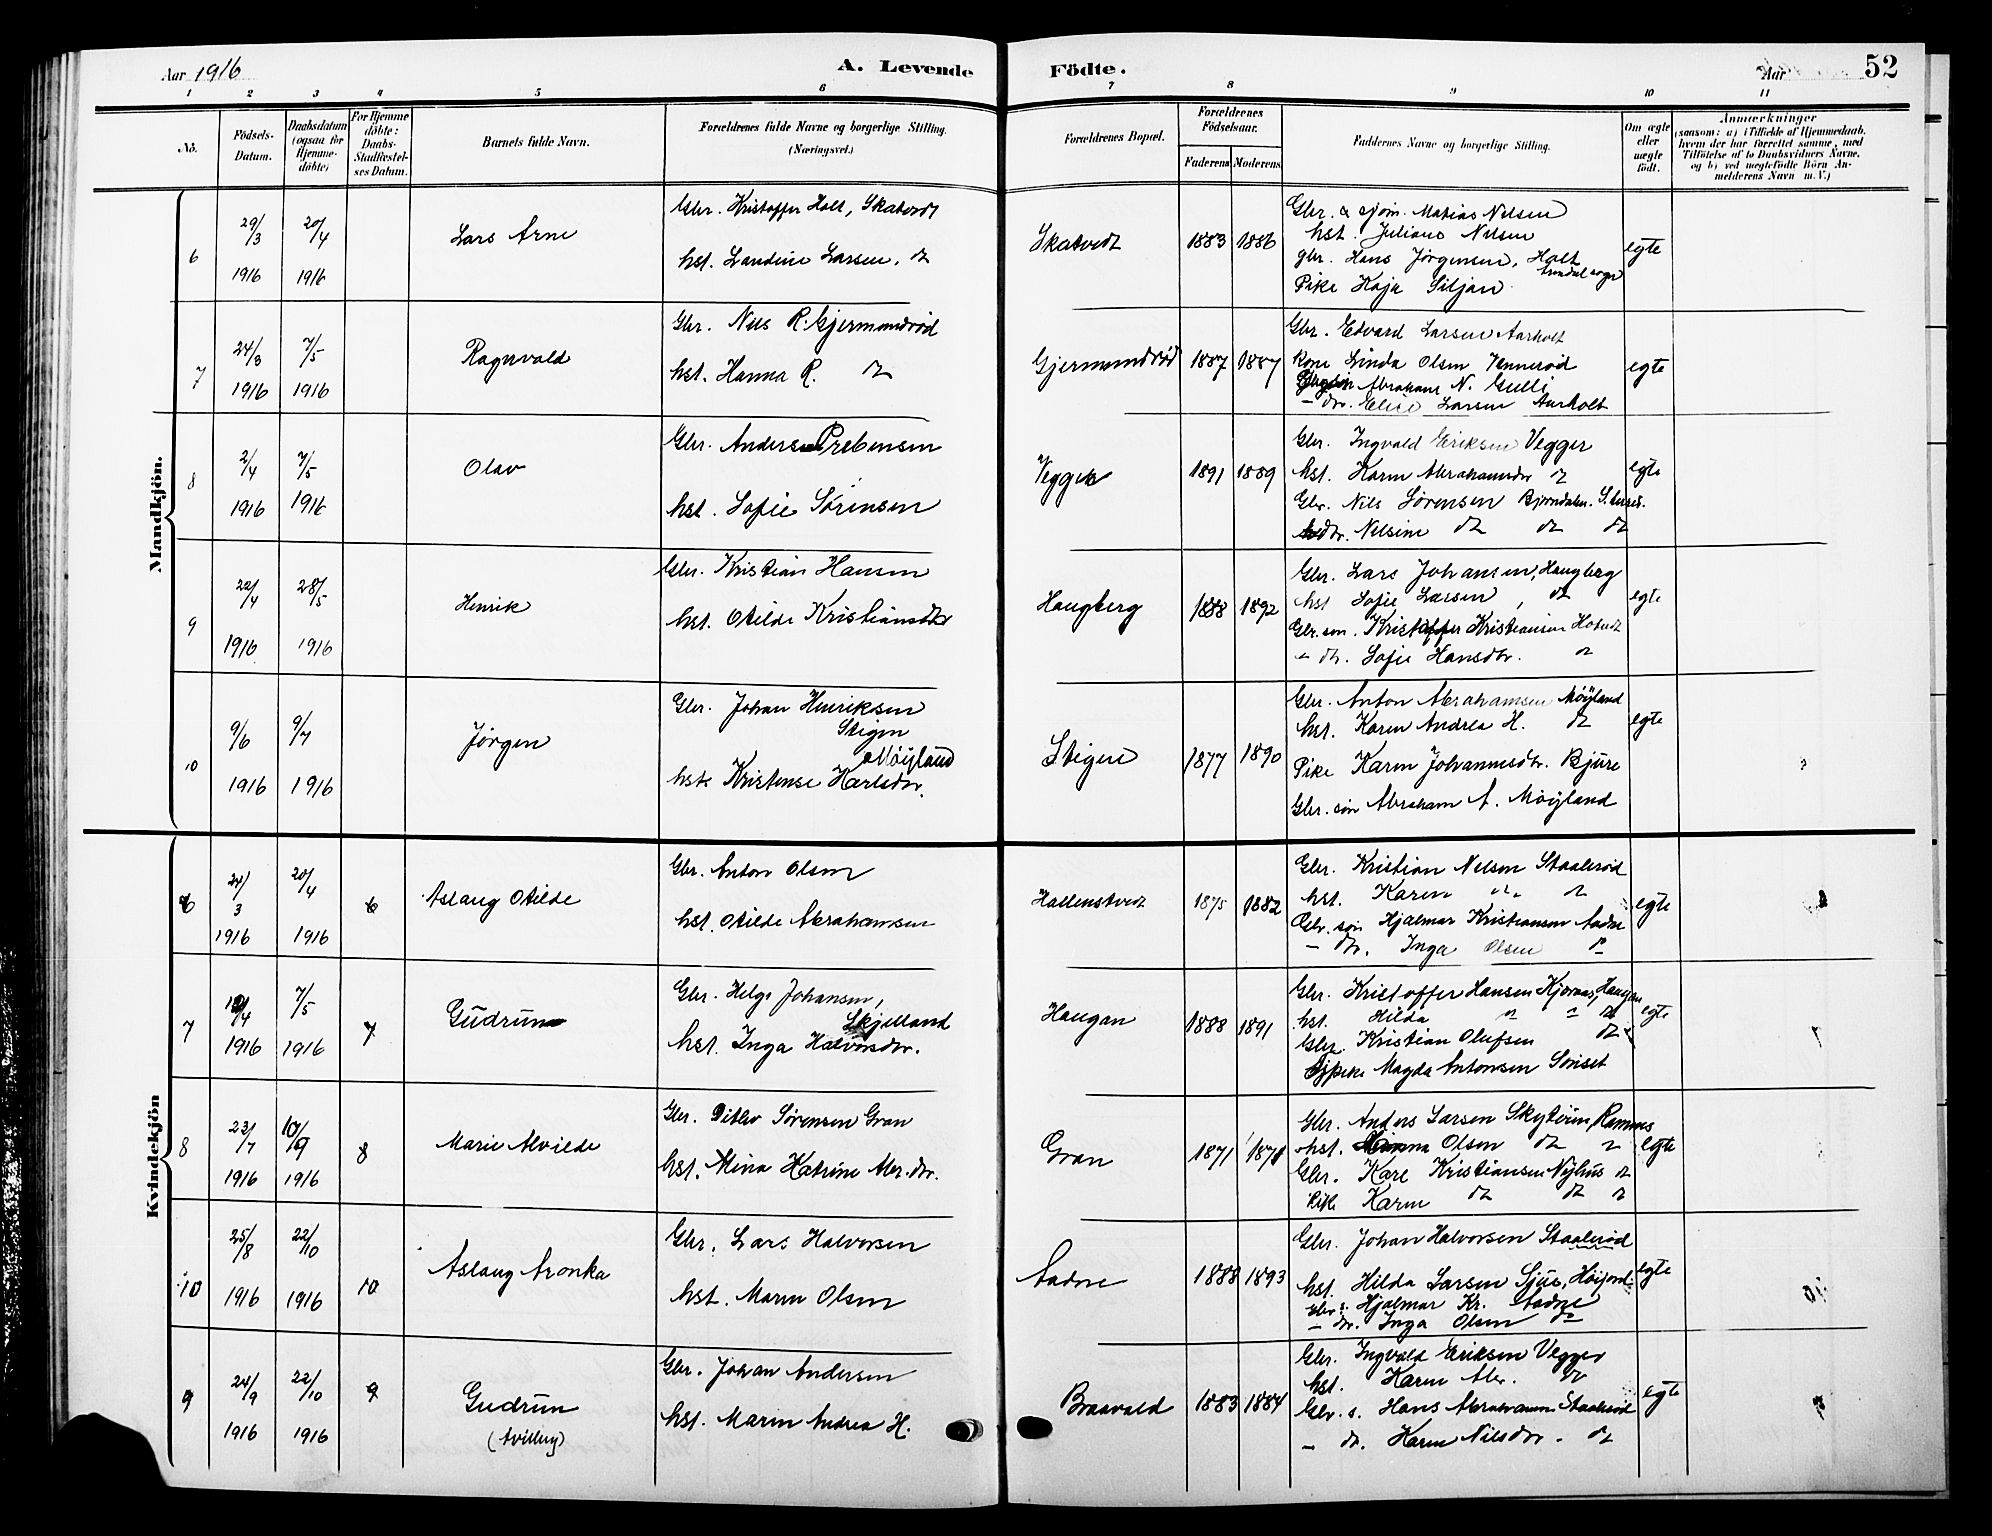 Aar 1916
A. Levende Födte.
Aar
52
1 2 3 4 5 6 7 8 9 10 11
No.
Födsels-Datum.
Daabsdatum (ogsaa for Hjemme-döbte)
For Hjemme döbte: Daabs-Stadfæstel-ses Datum.
Barnets fulde Navn.
Forældrenes fulde Navne og borgerlige Stilling. (Næringsvei.)
Forældrenes Bopæl.
Forældrenes Födselsaar.
Faderens Moderens
Faddernes Navne og borgerlige Stilling.
Om ægte eller uægte födt.
Anmærkninger
(saasom: a) i Tilfælde af Hjemmedaab.
hvem der har forrettet samme, med
Tilföielse af to Daabsvidners Navne.
og b) ved uægtefödte Börn An-
melderens Navn m. V.)
Mandkjön.
6
29/3 1916
20/4 1916
Lars Arne
Gbr. Kristoffer Holt, Skatvedt
hst. Landine Larsen, do
Skatvedt
1883 1886
Gbr. & sjöm. Matias Nilsen
hst. Juliane Nilsen
gbr. Hans Jørgensen, Holt
Pike Kaja Siljan
egte
7
24/3 1916
7/5 1916
Ragnvald
Gbr. Nils R. Gjermundrød
hst. Hanna R. do
Gjermundrød
1887 1887
Gbr. Edvard Larsen Aarholt
Kone Linda Olsen Vennerød
Abraham N. Gulli
- dr. Elise Larsen Aarholt
egte
8
2/4 1916
7/5 1916
Olav
Gbr. Anders Prebensen
hst. Sofie Sörensen
Vegger
1891 1889
Gbr. Ingvald Eriksen Vegger
hst. Karen Abrahamsdr do
Gbr. Nils Sørensen Bjørndalen.
dr. Nelsine do do do
egte
9
22/4 1916
28/5 1916
Henrik
Gbr. Kristian Hansen
hst. Otilde Kristiansdtr
Haugberg
1888 1892
Gbr. Lars Johansen, Haugberg
hst Sofie Larsen, do
Gbr. søn. Kristoffer Kristiansen
- dr. Sofie Hansdtr. do
egte
10
9/6 1916
9/7 1916
Jörgen
Gbr. Johan Henriksen
Stigen
Möyland
hst. Kristense Karlsdtr.
Stigen
1877 1890
Gbr. Anton Abrahamsen Möyland
hst. Karen Andrea H. do
Pike Karen Johannesdtr. Bjure
Gbr. søn Abraham A. Möyland
egte
Kvindekjön
6
24/3 1916
20/4 1916
6
Aslaug Otilde
Gbr. Anton Olsen
hst. Otilde Abrahamsen
Hallenstvedt
1875 1882
Gbr. Kristian Nelson Staalerød
hst. Karen " do
Gbr. søn Hjalmar Kristiansen Aadne
- dr. Inga Olsen do
egte
7
/4 1916
7/5 1916
7
Gudrun
Gbr. Helge Johansen,
Skjelland
hst. Inga Halvorsdtr.
Haugan
1888 1891
Gbr. Kristoffer Hansen Kjoraas, Haugan
hst. Hilda " " do
Gbr. Kristian Olufsen do
pike Magda Antonsen Sönset
egte
8
23/7 1916
10/9 1916
8
Marie Alvilde
Gbr. Ditlev Sørensen Gran
hst. Mina Katrine Abr. dtr.
Gran
1871 1871
Gbr. Anders Larsen Skyteren, Ramnes
hst. Olsen do "
Gbr. Karl Kristiansen Nyhus do
Pike Karen do do do
egte
10
25/8 1916
22/10 1916
10
Aslaug Aronka
Gbr. Lars Halvorsen
hst. Maren Olsen
Aadne
1888 1893
Gbr. Johan Halvorsen Staalerød
hst. Hilda Larsen Sjue, Höijord
Gbr. s. Hjalmar Kr. Aadne
- dr. Inga Olsen do
egte
9
24/9 1916
22/10 1916
9
Gudrun
Gbr. Johan Andersen
hst. Maren Andrea H.
Braavald
1883 1884
Gbr. Ingvald Eriksen Vegger
hst. Karen Abr. do
Gbr. s. Hans Abrahamsen Staalerød
- dr. Karen Nilsdtr. do
egte